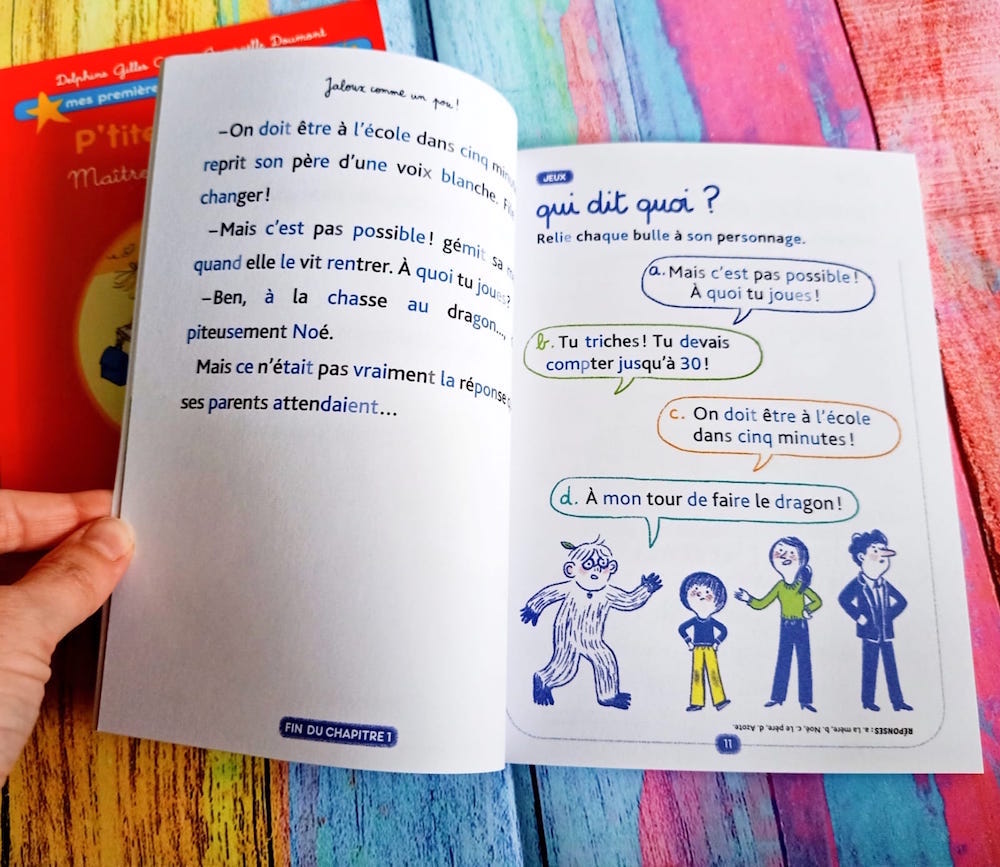 Delphine Gilles
Doumont
mes première
P'tite
Maître
Jaloux comme un pou !
–On doit être à l'école dans cinq
reprit son père d'une voix blanche.
changer !
–Mais c'est pas possible ! gémit sa
quand elle le vit rentrer. À quoi tu joues ?
–Ben, à la chasse au dragon...,
piteusement Noé.
Mais ce n'était pas vraiment la réponse
ses parents attendaient...
FIN DU CHAPITRE 1
JEUX
qui dit quoi ?
Relie chaque bulle à son personnage.
a. Mais c'est pas possible !
À quoi tu joues !
b. Tu triches ! Tu devais
compter jusqu'à 30 !
c. On doit être à l'école
dans cinq minutes !
d. À mon tour de faire le dragon !
RÉPONSES : a. La mère, b. Noé, c. Le père, d. Azote.
11